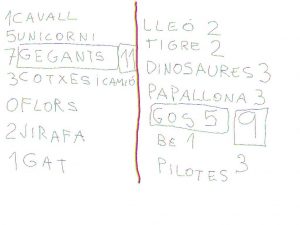 1 CAVALL
5 UNICORNI
7 GEGANTS 11
3 COTXES I CAMIÓ
0 FLORS
2 JIRAFA
1 GAT
LLEÓ 2
TIGRE 2
DINOSAURES 3
PAPALLONA 3
GOS 5 9
BE 1
PILOTES 3